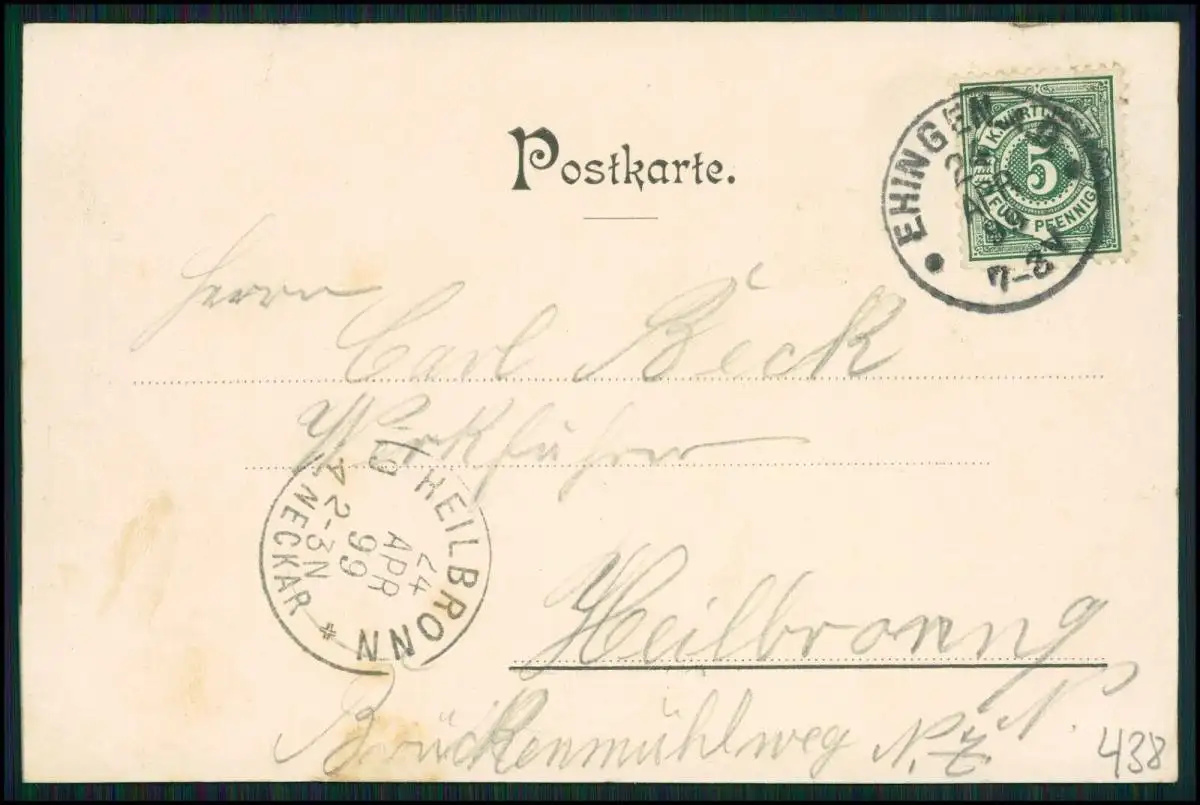 Postkarte.
K. WÜRTT. POST
5
FÜNF PFENNIG
EHINGEN
APR
99
7-8 V
Herrn
Carl Beck
Werkführer
HEILBRONN
24
APR
99
2-3N
NECKAR
Heilbronn
Brückenmühlweg N.
438